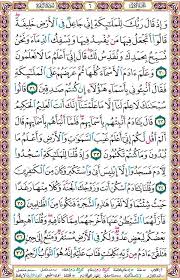 وَإِذْ قَالَ رَبُّكَ لِلْمَلَٰٓئِكَةِ إِنِّي جَاعِلٌ فِي الْأَرْضِ خَلِيفَةً
قَالُوٓا أَتَجْعَلُ فِيهَا مَن يُفْسِدُ فِيهَا وَيَسْفِكُ الدِّمَآءَ وَنَحْنُ
نُسَبِّحُ بِحَمْدِكَ وَنُقَدِّسُ لَكَ قَالَ إِنِّي أَعْلَمُ مَا لَا تَعْلَمُونَ
وَعَلَّمَ ءَادَمَ الْأَسْمَآءَ كُلَّهَا ثُمَّ عَرَضَهُمْ عَلَى الْمَلَٰٓئِكَةِ
فَقَالَ أَنۢبِـُٔونِي بِأَسْمَآءِ هَٰٓؤُلَآءِ إِن كُنتُمْ صَٰدِقِينَ
قَالُوا سُبْحَٰنَكَ لَا عِلْمَ لَنَآ إِلَّا مَا عَلَّمْتَنَآ إِنَّكَ أَنتَ الْعَلِيمُ الْحَكِيمُ
قَالَ يَٰٓـَٔادَمُ أَنۢبِئْهُم بِأَسْمَآئِهِمْ فَلَمَّآ أَنۢبَأَهُم بِأَسْمَآئِهِمْ
قَالَ أَلَمْ أَقُل لَّكُمْ إِنِّي أَعْلَمُ غَيْبَ السَّمَٰوَٰتِ وَالْأَرْضِ وَأَعْلَمُ
مَا تُبْدُونَ وَمَا كُنتُمْ تَكْتُمُونَ وَإِذْ قُلْنَا لِلْمَلَٰٓئِكَةِ اسْجُدُوا
لِءَادَمَ فَسَجَدُوٓا إِلَّآ إِبْلِيسَ أَبَىٰ وَاسْتَكْبَرَ وَكَانَ مِنَ الْكَٰفِرِينَ
وَقُلْنَا يَٰٓـَٔادَمُ اسْكُنْ أَنتَ وَزَوْجُكَ الْجَنَّةَ وَكُلَا مِنْهَا رَغَدًا
حَيْثُ شِئْتُمَا وَلَا تَقْرَبَا هَٰذِهِ الشَّجَرَةَ فَتَكُونَا مِنَ الظَّٰلِمِينَ
فَأَزَلَّهُمَا الشَّيْطَٰنُ عَنْهَا فَأَخْرَجَهُمَا مِمَّا كَانَا فِيهِ وَقُلْنَا اهْبِطُوا
بَعْضُكُمْ لِبَعْضٍ عَدُوٌّ وَلَكُمْ فِي الْأَرْضِ مُسْتَقَرٌّ وَمَتَٰعٌ إِلَىٰ حِينٍ